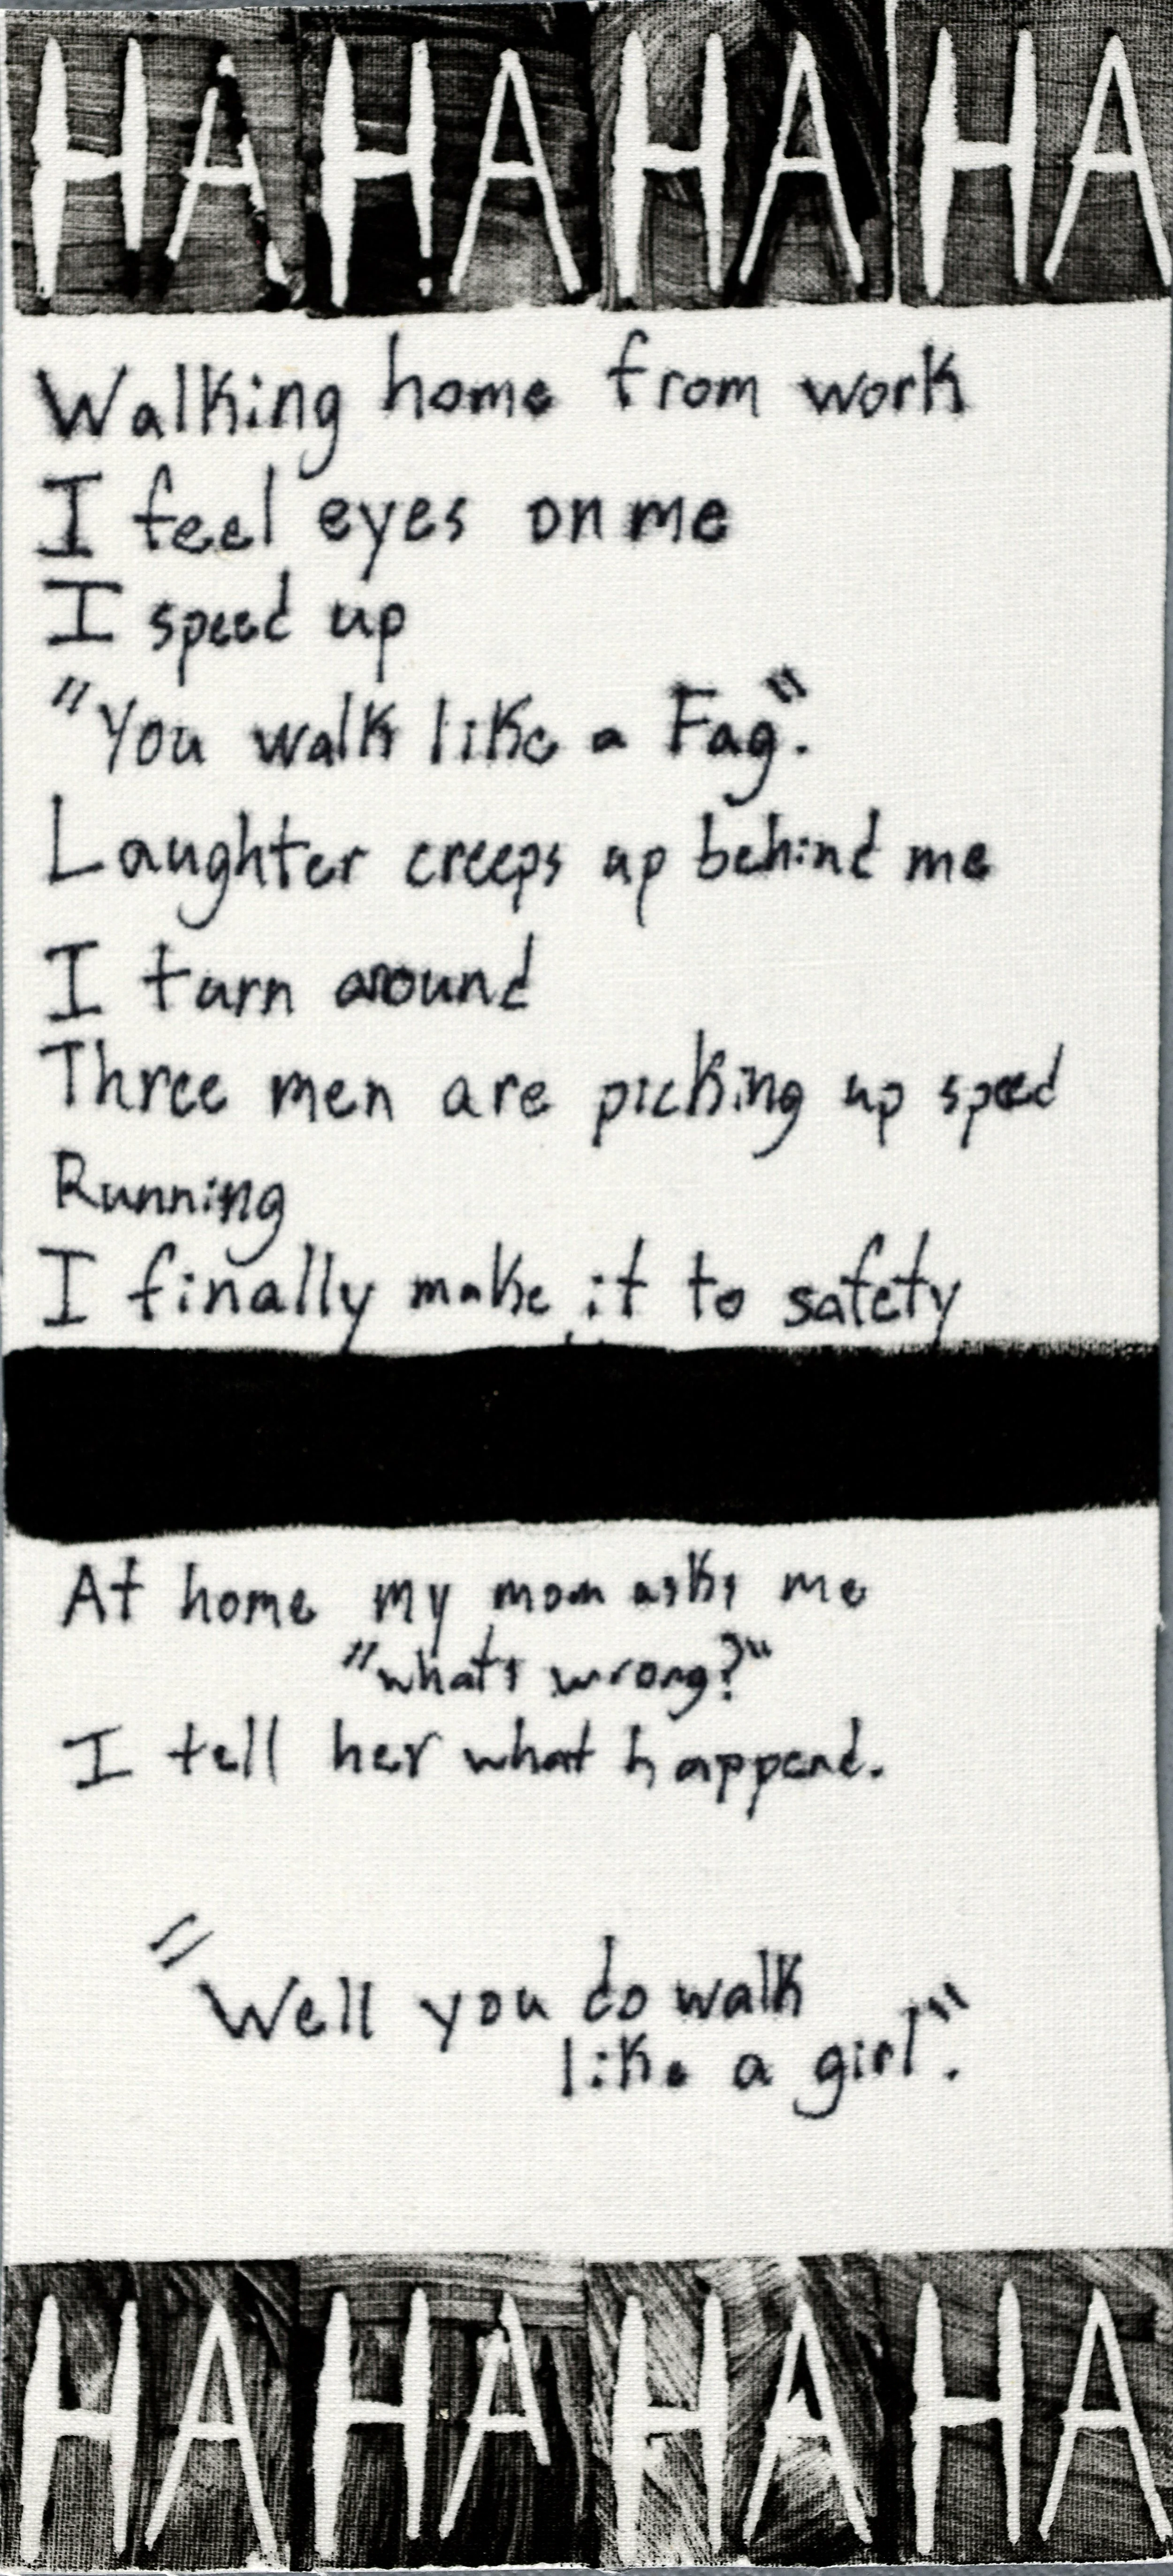 HA HA HA HA
Walking home from work
I feel eyes on me
I speed up
"You walk like a Fag".
Laughter creeps up behind me
I turn around
Three men are picking up speed
Running
I finally make it to safety
At home my mom asks me
"whats wrong?"
I tell her what happend.
"Well you do walk
like a girl".
HA HA HA HA